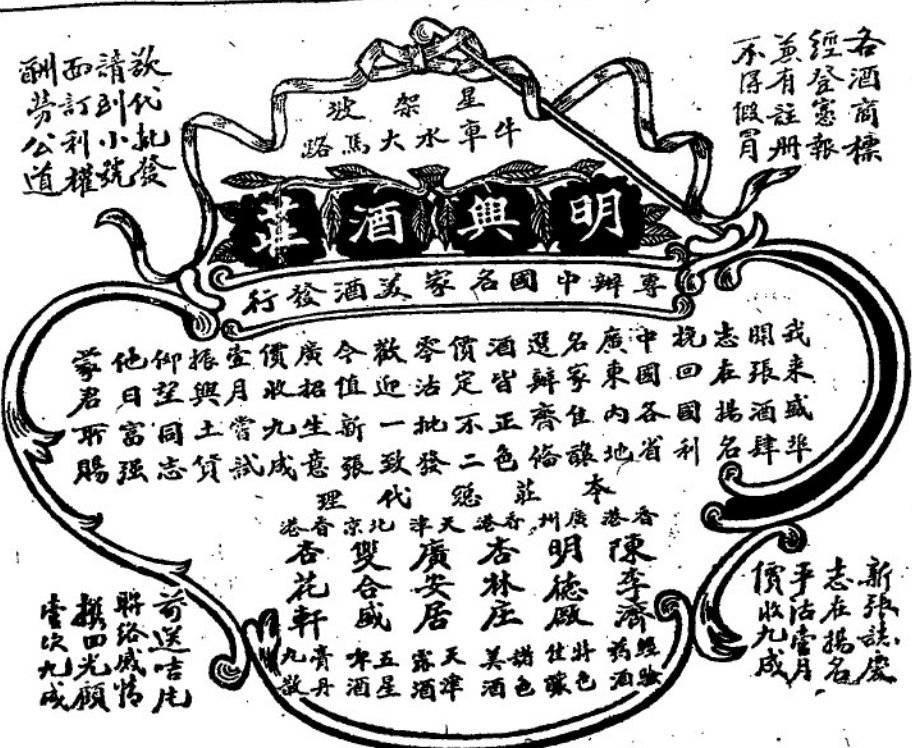 各酒商標
經登憲報
兼有註册
不得假冒
星架坡
牛車水大馬路
欲代批發
請到小號
面訂利權
酬勞公道
明興酒莊
專辦中國名家美酒發行
我来盛埠
開張酒肆
志在揚名
挽回國利
中國各省
廣東内地
名家佳釀
選辦齊備
酒皆正色
價定不二
零沽批發
歡迎一致
今值新張
廣招生意
價收九成
壹月嘗試
振興土貨
仰望同志
他日富强
蒙君所賜
本莊總代理
香港
陳李濟
經驗藥酒
廣州
明德廠
特色佳釀
香港
杏林庄
諸色美酒
天津
廣安居
天津露酒
北京
雙合盛
五星啤酒
香港
杏花軒
膏丹丸散
新張誌慶
志在揚名
平沽壹月
價收九成
前送咭片
聯絡感情
携回光顧
壹次九成